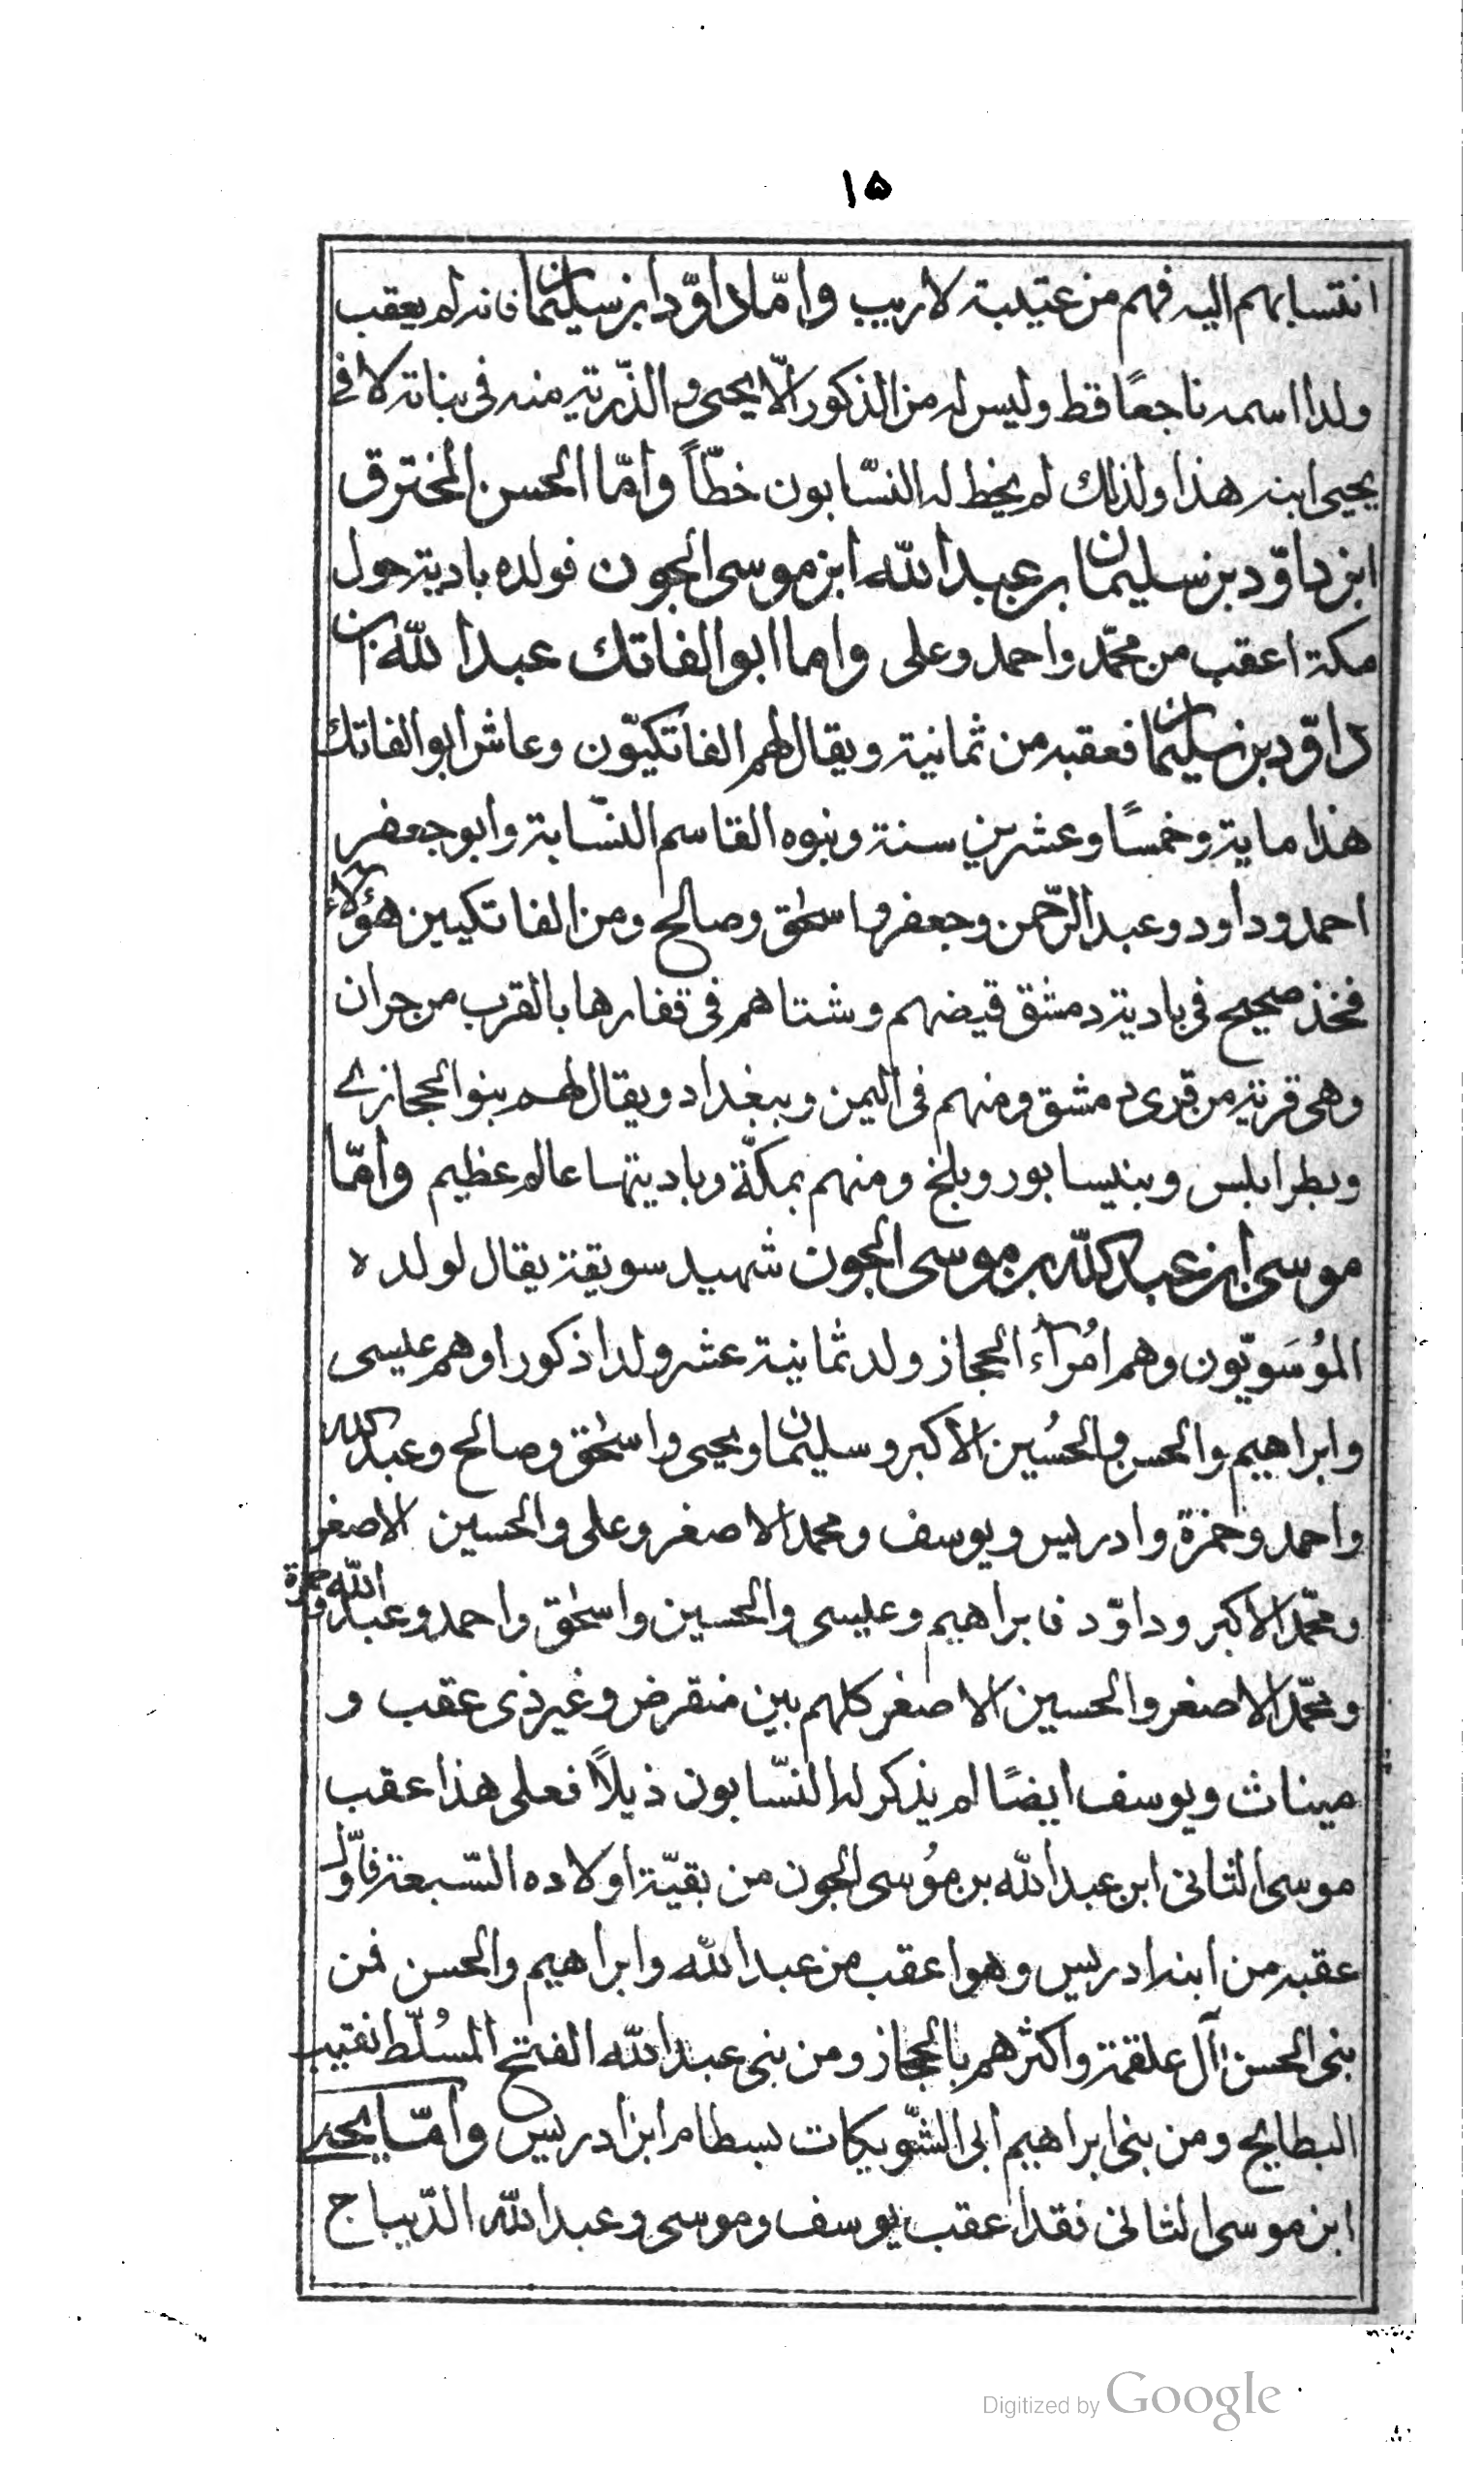 ١٥
انتسابهم اليه فهم من عتيبة لا ريب وامّا داوّد ابن سليمان فانه لم يعقب
ولدا اسمه ناجعًا قط وليس له من الذكور الّا يحيى والذّرية منه في بناته لا في
يحيى ابنه هذا ولذلك لم يخط له النسّابون خطّاً وامّا الحسن المخترق
ابن داوّد بن سليمان بن عبد الله ابن موسى الجون فولده بادية حول
مكة اعقب من محمّد واحمد وعلى واما ابو الفاتك عبد الله بن
داوّد بن سليمان فعقبه من ثمانية ويقال لهم الفاتكيّون وعاش ابو الفاتك
هذا ماية وخمسًا وعشرين سنة وبنوه القاسم النسّابة وابو جعفر
احمد وداود وعبد الرّحمن وجعفر واسحٰق وصالح ومن الفاتكيين هؤلاء
فخذ صحيح في بادية دمشق قيضهم وشتاهم في قفارها بالقرب من جران
وهى قرية من قرى دمشق ومنهم في اليمن وببغداد ويقال لهم بنو الحجازى
وبطرابلس وبنيسابور وبلخ ومنهم بمكّة وباديتها عالم عظيم وامّا
موسى ابن عبد الله بن موسى الجون شهيد سويقة يقال لولده
المُوسَويّون وهم امُرآء الحجاز ولد ثمانية عشر ولدا ذكورا وهم عليسى
وابراهيم والحسن والحُسين الاكبر وسليمان ويحيى واسحٰق وصالح وعبد الله
واحمد وحمزة وادريس ويوسف ومحمد الاصغر وعلى والحسين الاصغر
ومحمّد الاكبر وداوّد فابراهيم وعليسى والحسين واسحٰق واحمد وعبد الله وحمزة
ومحمّد الاصغر والحسين الاصغر كلهم بين منقرض وغير ذى عقب و
ميناث ويوسف ايضًا لم يذكر له النسّابون ذيلاً فعلى هذا عقب
موسى الثانى ابن عبد الله بن مُوسى الجون من بقيّة اولاده السّبعة فاوّل
عقبه من ابنه ادريس وهو اعقب من عبد الله وابراهيم والحسن فمن
بنى الحسن آل علقمة واكثرهم بالحجاز ومن بنى عبد الله الفتح المُسلّط نقيب
البطايح ومن بنى ابراهيم ابى الشّويكات بسطام ابن ادريس وامّا يحيى
ابن موسى الثانى فقد اعقب يوسف وموسى وعبد الله الدّيباج
Digitized by Google